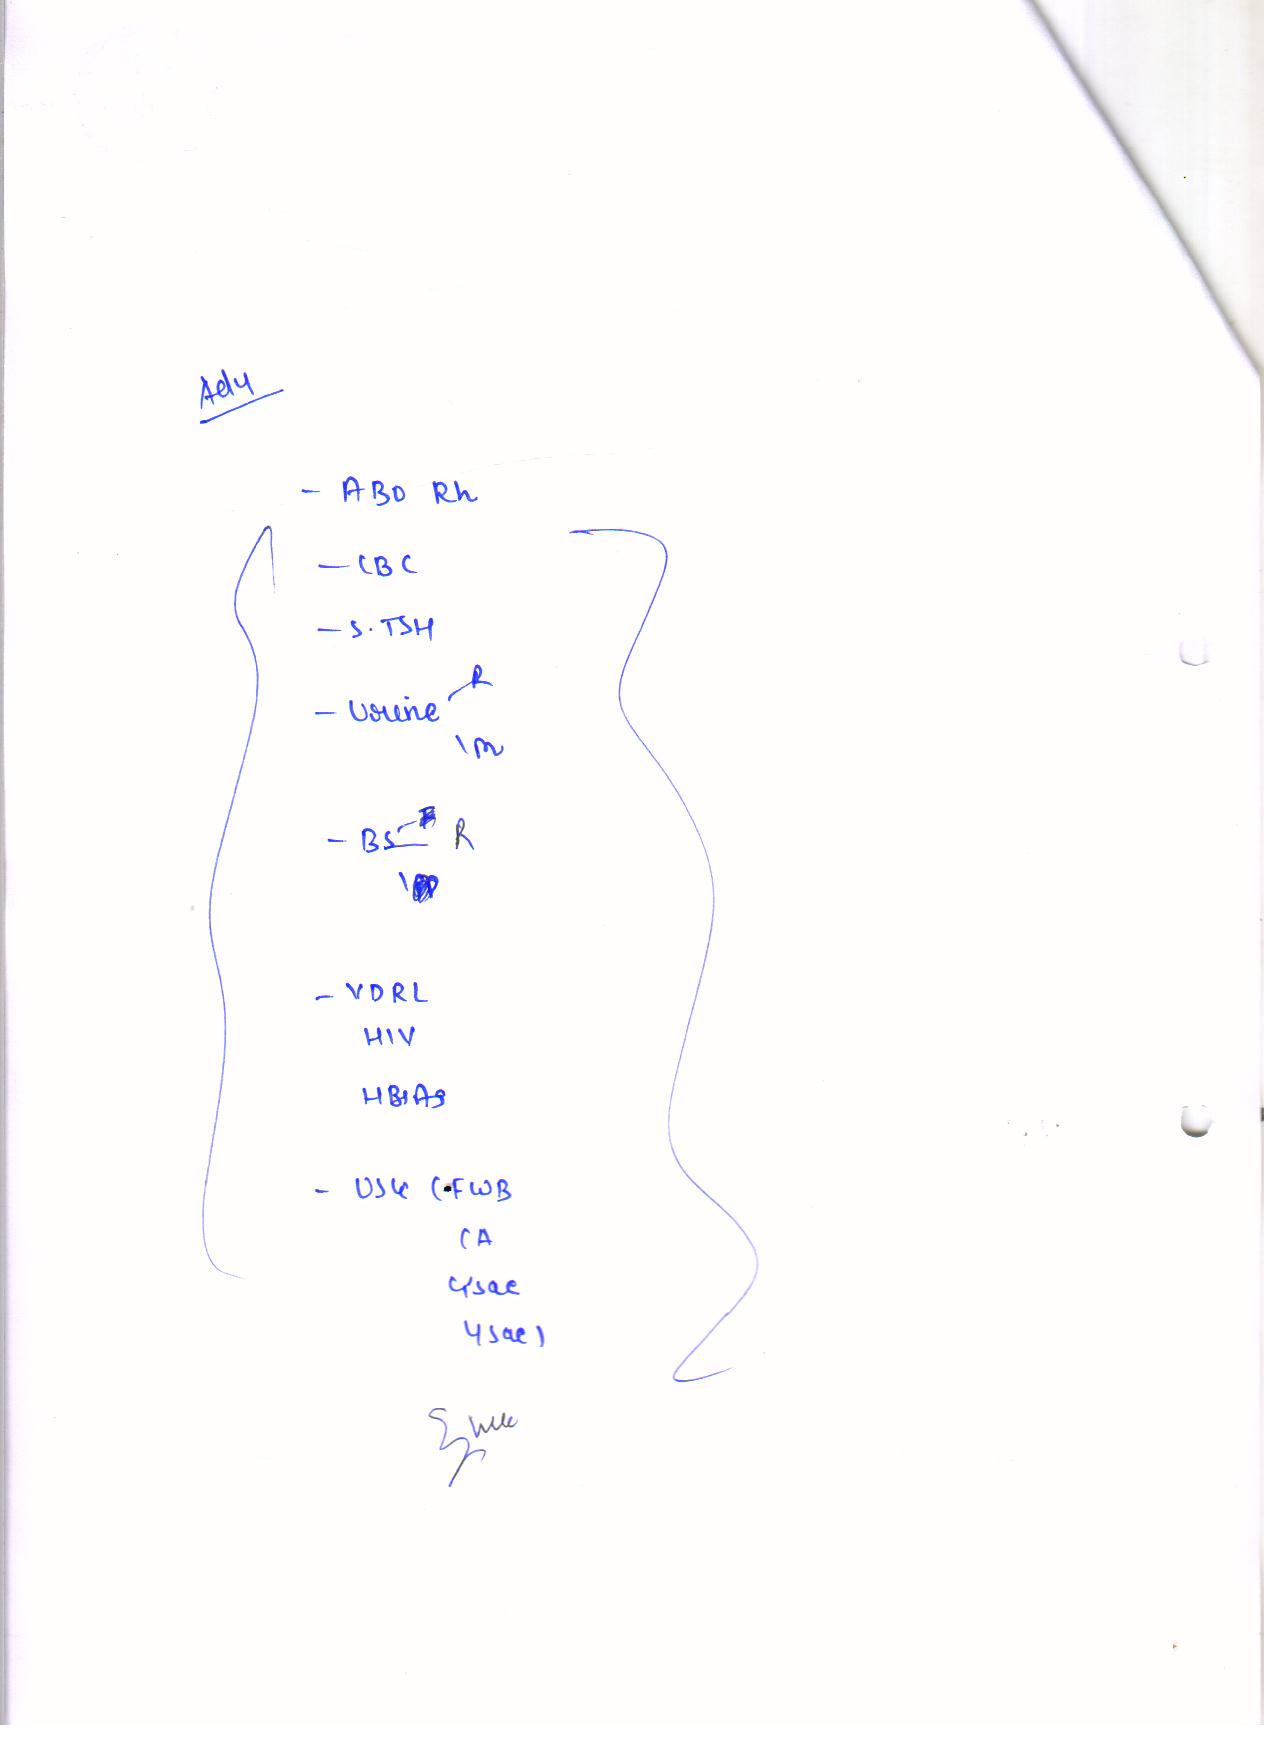 Adv
- ABO Rh
- CBC
- S. TSH
- Urine R
M
- BS R
- VDRL
HIV
HBsAg
- USG (FWB
CA
G sac
Y sac)